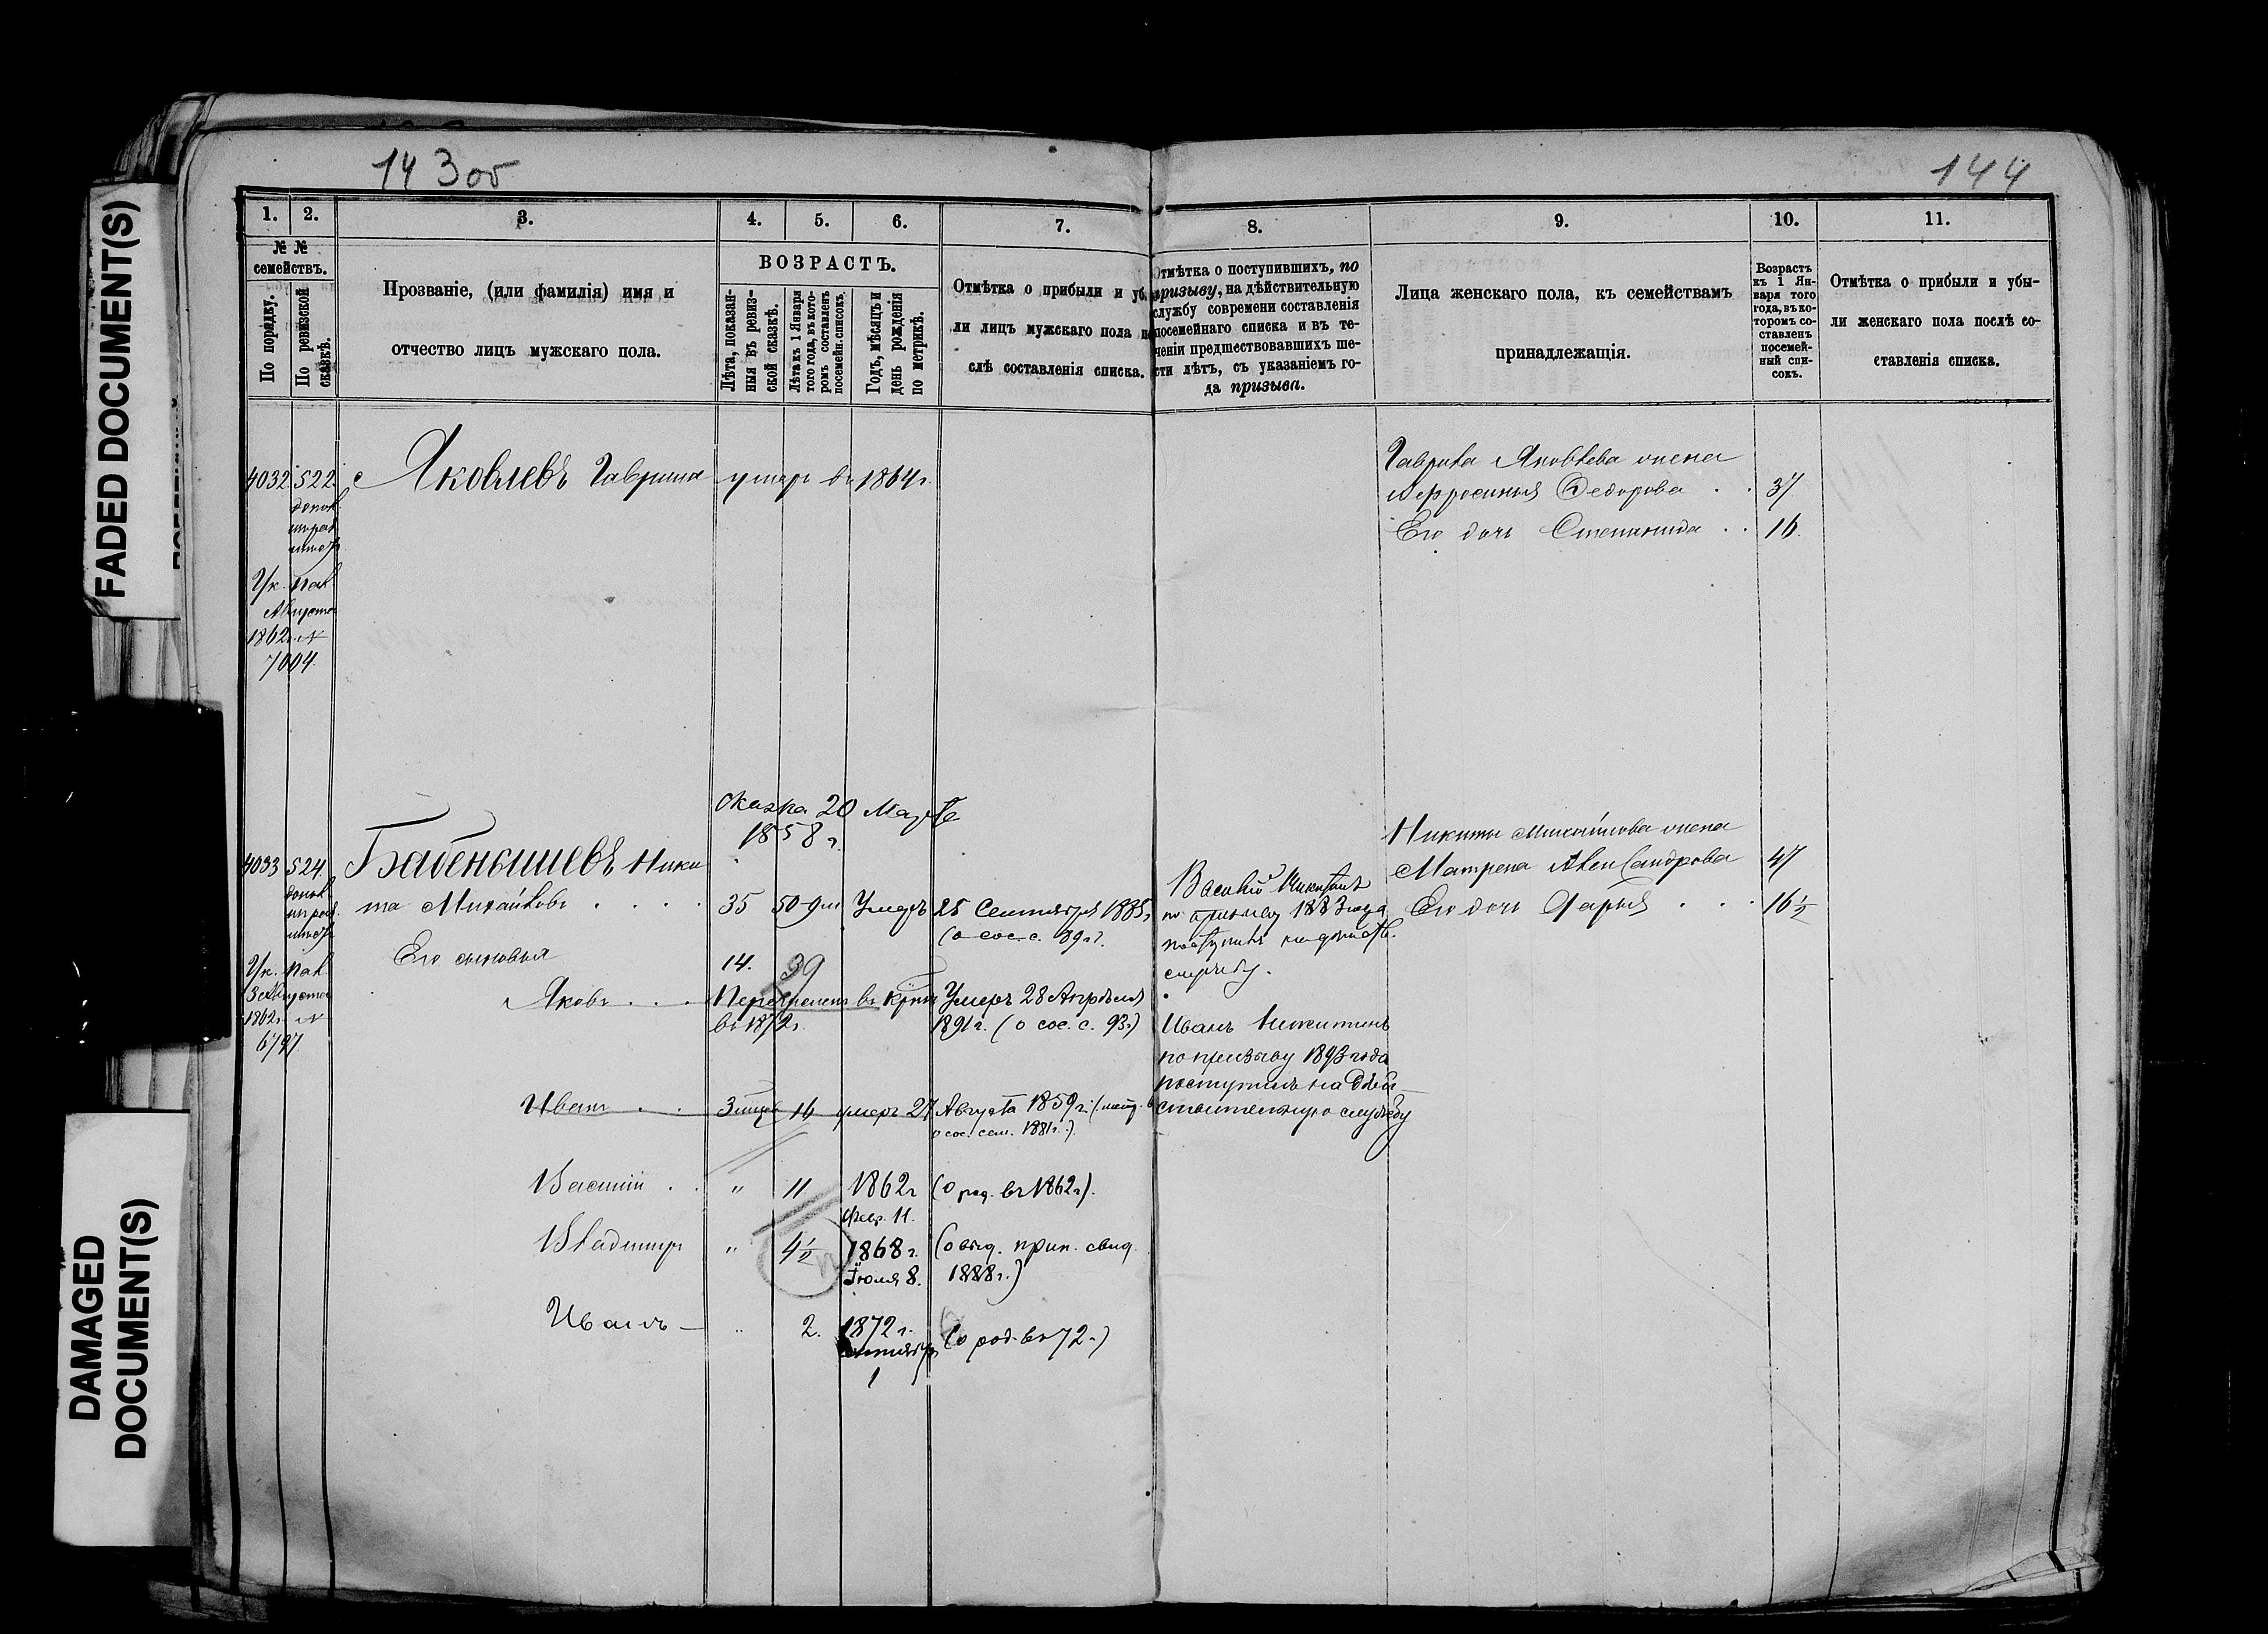 FADED DOCUMENT(S)
DAMAGED
DOCUMENT(S)
143об
144
1. 2. 3. 4. 5. 6. 7. 8. 9. 10. 11.
№ №
семействъ.
По порядку.
По ревизской
сказкѣ.
Прозваніе, (или фамилія) имя и
отчество лицъ мужскаго пола.
ВОЗРАСТЪ.
Лѣта, показан-
ныя въ ревиз-
ской сказкѣ.
Лѣта къ 1 Января
того года, въ кото-
ромъ составленъ
посемейн. списокъ.
Годъ, мѣсяцъ и
день рожденія
по метрикѣ.
Отмѣтка о прибыли и уб
ли лицъ мужскаго пола п
слѣ составленія списка.
Отмѣтка о поступившихъ, по
призыву, на дѣйствительную
службу современи составленія
посемейнаго списка и въ те-
ченіи предшествовавшихъ ше-
сти лѣтъ, съ указаніемъ го-
да призыва.
Лица женскаго пола, къ семействамъ
принадлежащія.
Возрастъ
къ 1 Ян-
варя того
года, въ ко-
торомъ со-
ставленъ
посемей-
ный спи-
сокъ.
Отмѣтка о прибыли и убы-
ли женскаго пола послѣ со-
ставленія списка.
4032 522
Яковлевъ Гаврила умеръ въ 1864 г.
Ук. Пал.
Августа
1862 г. №
7004.
Гаврила Яковлева жена
Аефросинья Федорова . . 37
Его дочь Степанида . . 16.
Сказка 20 Марта
1858 г.
4033 524.
Бабенышевъ Ники
та Михайловъ . . . . 35 50-9м Умеръ 25 Сентября 1885 г.
(о сос. с. 89 г.).
Ук. Пал.
Августа
1862 г. №
6797.
Его сыновья
Яковъ . . .
14. 39
въ 1872 г.
Умеръ 28 Апрѣля
1891 г. (о сос. с. 93 г.)
Иванъ . . 16 умеръ 27 Августа 1859 г.
о сос. сем. 1881 г.).
Василій . . " 11 1862 г. (о род. въ 1862 г.).
Февр. 11.
Владимиръ " 4½ 1868 г. (о выд. прип. свид.
Іюля 8. 1888 г.)
Иванъ — " 2. 1872 г. (о род. въ 72 г.)
Сентября
1
Василій Никитинъ
по призыву 1883 года
поступилъ на дѣйств.
службу.
Иванъ Никитинъ
по призыву 1893 года
поступилъ на дѣй-
ствительную службу
Никиты Михайлова жена
Матрена Александрова 47
Его дочь Дарья . . . 16½